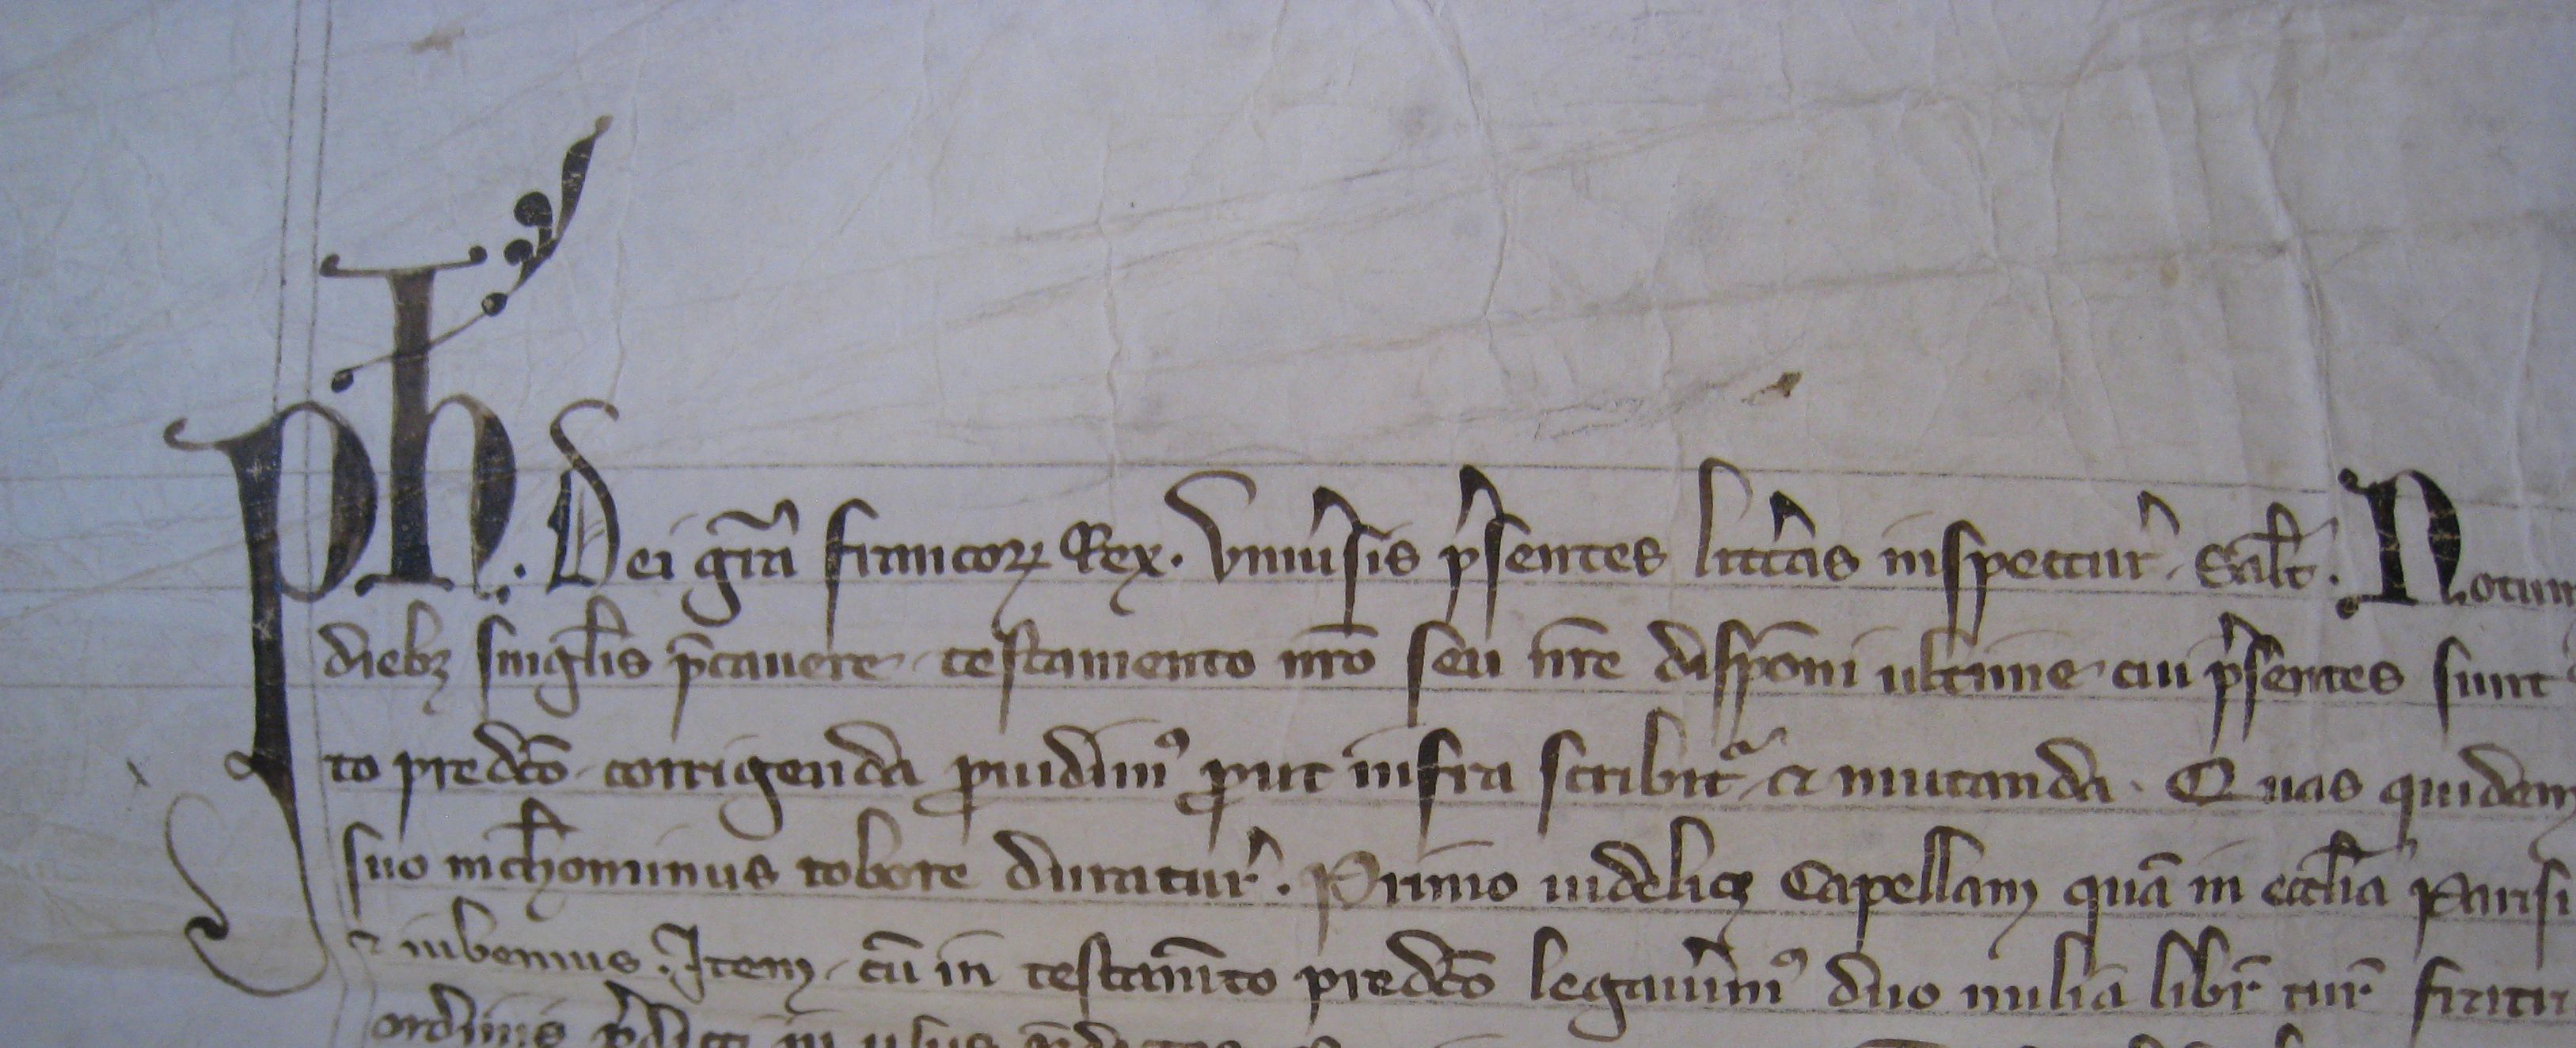 Ph. Dei gr̄a francoꝝ Rex. Vniu̓sis p̓sentes litt̓as inspectur̓. Sal̄t. Notum
dieb₃ singl̄is p̄cauere testamento nr̄o seu nr̄e disp̄oni ultime cui p̓sentes sunt
to predc̄o corrigenda ꝓuidimꝰ ꝓut infra scribit̾ ⁊ mutanda. Quas quidem
suo nichl̄ominus robore duratur̓. Primo uidelic₃ Capellam quā in eccl̄ia Parisi
⁊ iubemus. Item cū in testam̄to predc̄o legauim̓ꝰ duo milia libr̄ tur̄ fratr
ordinis p̓dicti in usus